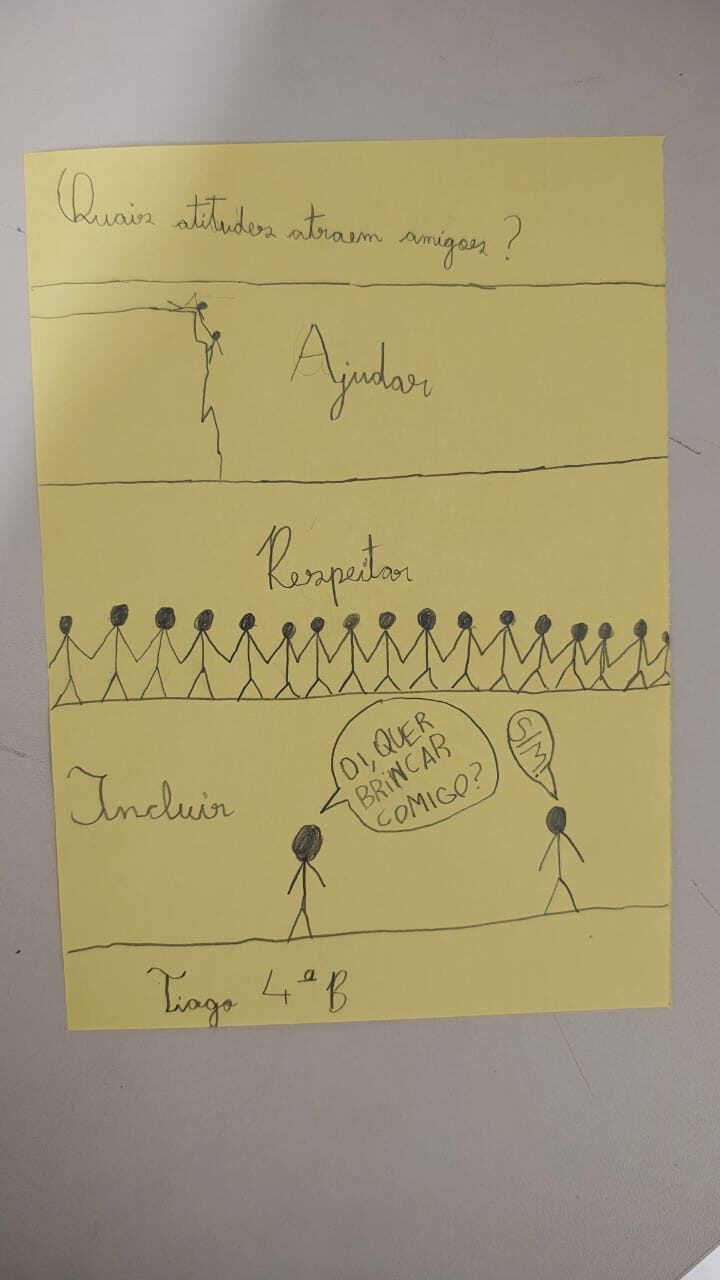 Quais atitudes atraem amigos?
Ajudar
Respeitar
OI, QUER
BRINCAR
COMIGO?
SIM!
Incluir
Tiago 4ª B